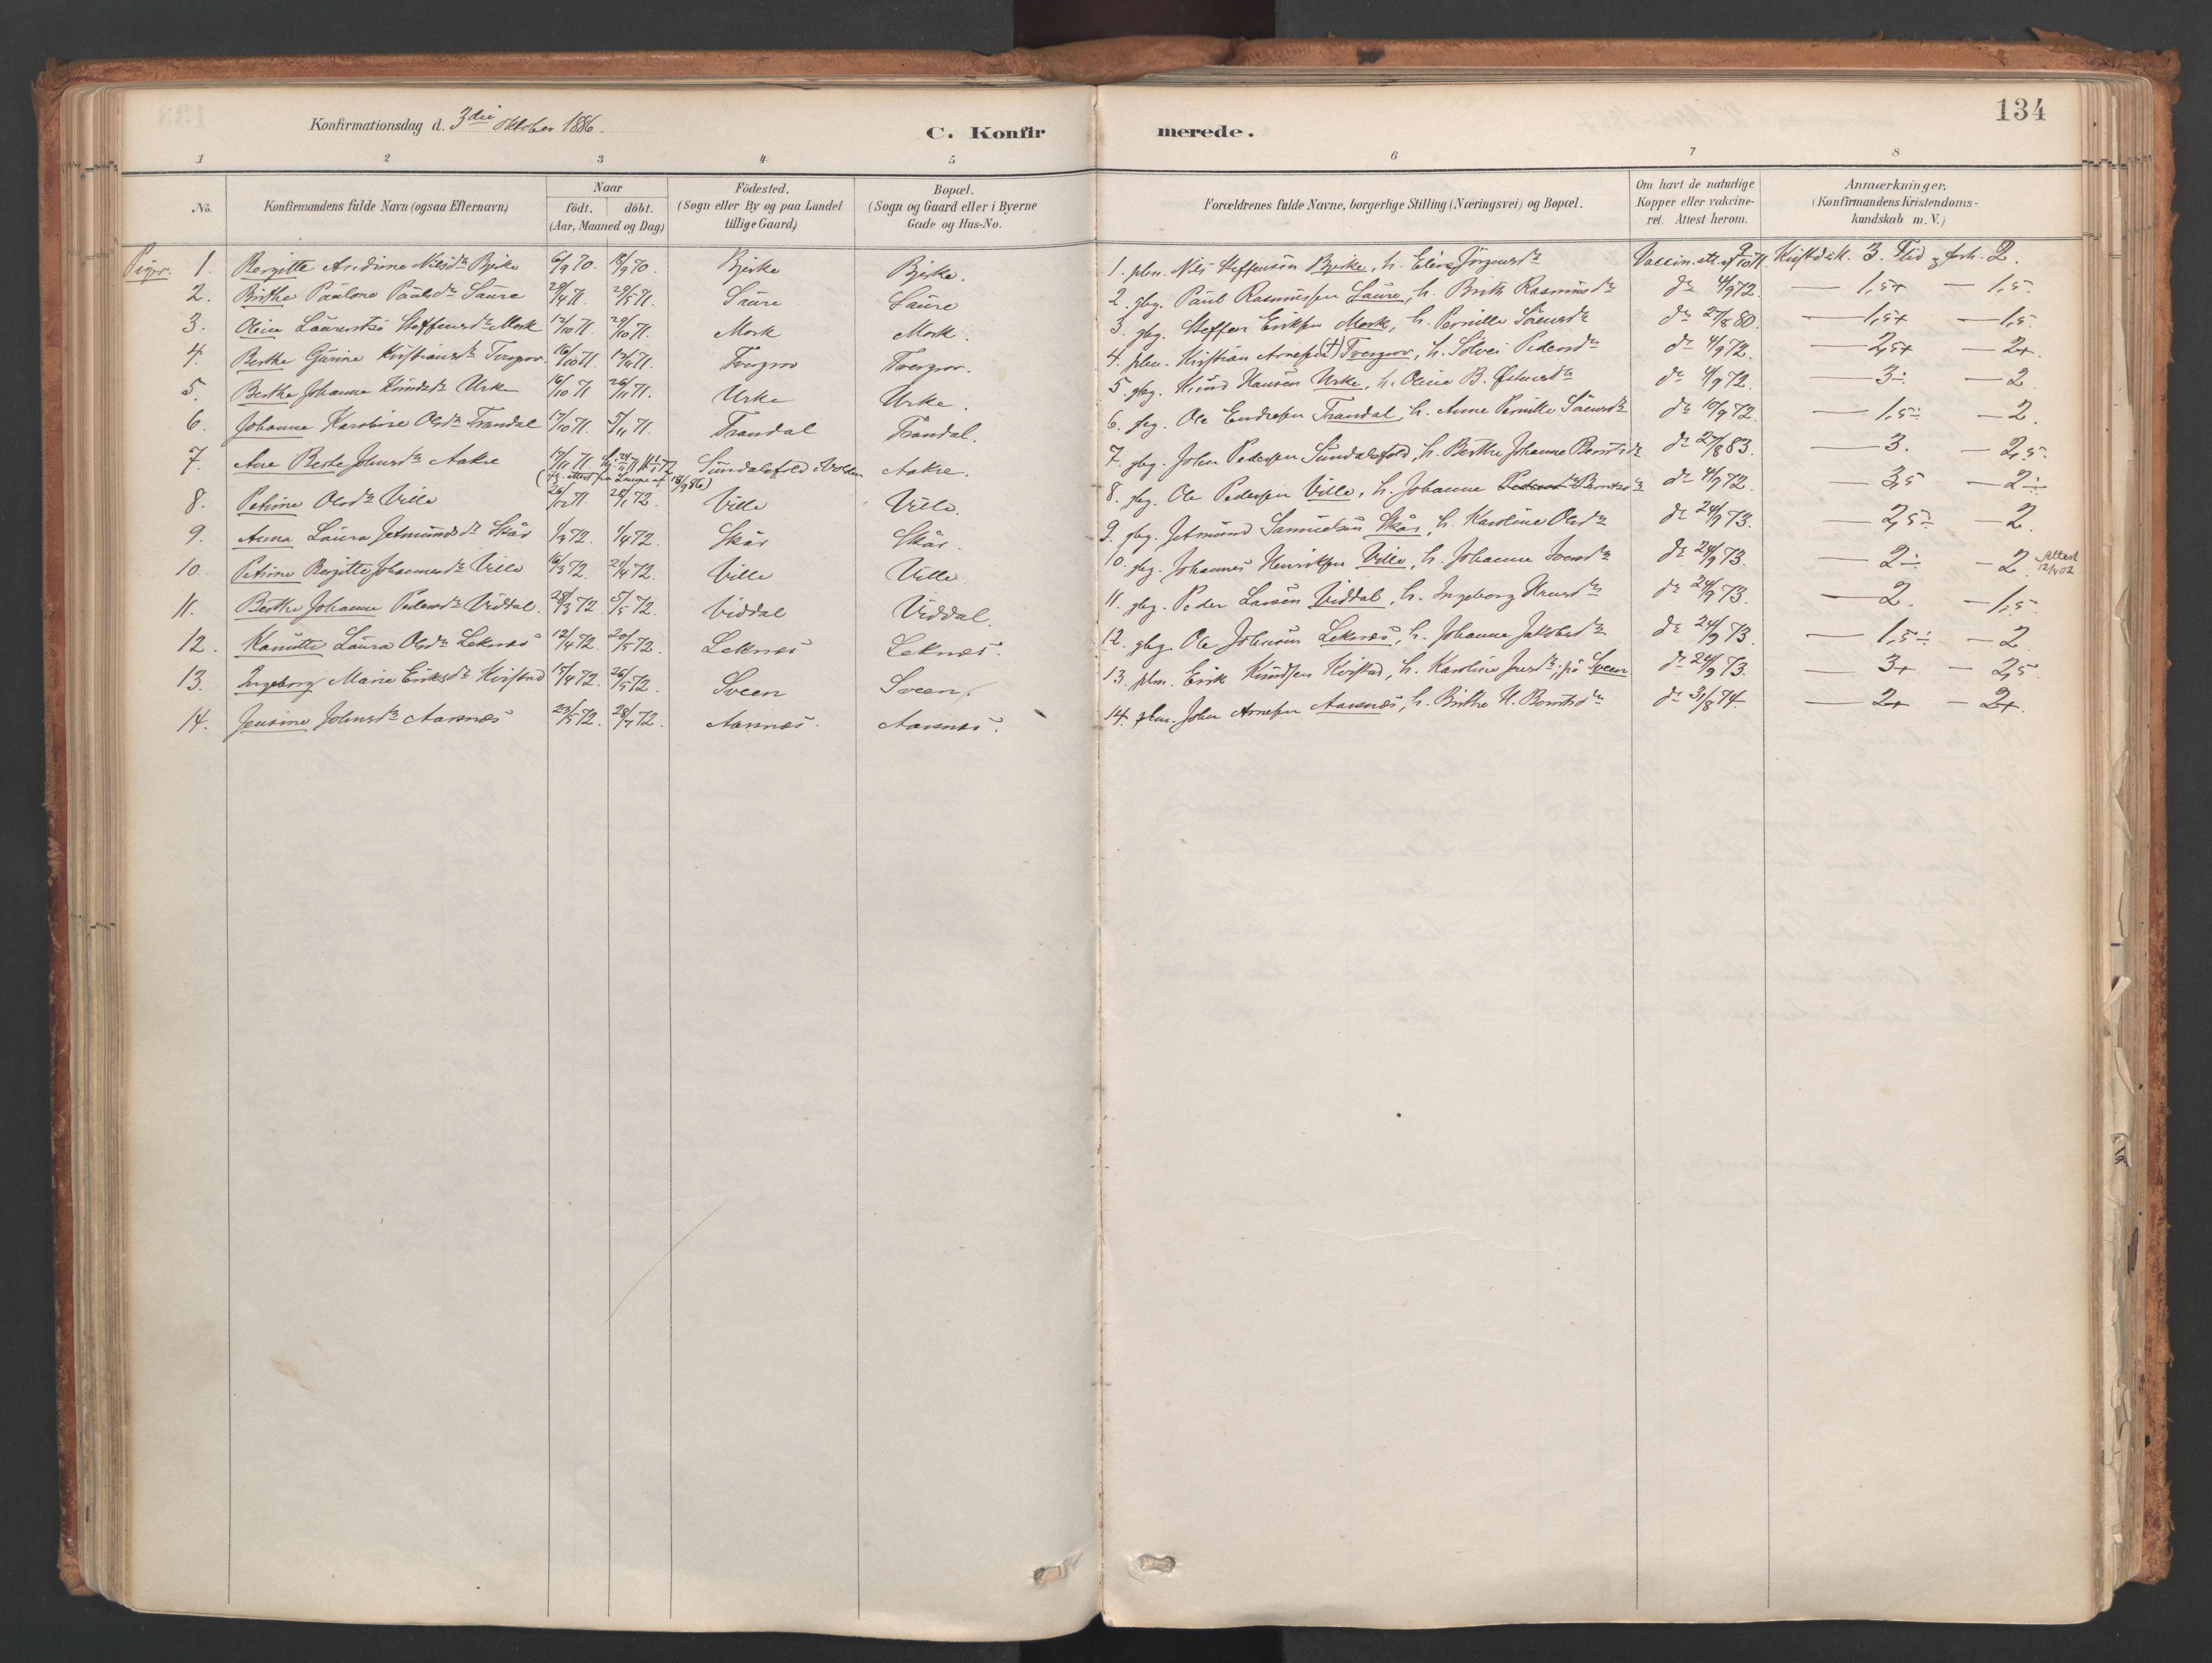 134
Konfirmationsdag d. 3die oktober 1886.
C. Konfirmerede.
1 2 3 4 5 6 7 8
No.
Konfirmandens fulde Navn (ogsaa Efternavn)
Naar
födt. döbt.
(Aar, Maaned og Dag)
Födested.
(Sogn eller By og paa Landet
tillige Gaard)
Bopæl.
(Sogn og Gaard eller i Byerne
Gade og Hus-No.
Forældrenes fulde Navne, borgerlige Stilling (Næringsvei) og Bopæl.
Om havt de naturlige
Kopper eller vakcine-
ret. Attest herom.
Anmærkninger.
(Konfirmandens Kristendoms-
kundskab m. V.)
Piger. 1. Bergitte Nilsdr Bjerke 6/9 70. 18/9 70. Bjerke Bjerke. 1. plm. Nils Steffensen Bjerke, h. Elen Jörgensdr Vaccin. att. af Kristdsk. 3. Flid og forh. 2.
2. Brithe Paulone Paulsdr Saure 29/4 71. 29/5 71. Saure Saure 2. gbg. Paul Rasmussen Saure, h. Brith Rasmusdr do 4/9 72. — 1,5+ — 1,5.
3. Oline Steffensdr Mork 12/10 71. 29/10 71. Mork Mork. 3. gbg. Steffen Eriksen Mork, h. Pernille do 27/8 80. — 1,5+ — 1,5.
4. Berthe Gurine Kristiansdr Tvergrov 16/10 71. Tvergrov Tvergrov. 4. plm. Kristian Arnesen (†) Tvergrov, h. Sölvei Pedersdr do 4/9 72. — 2,5+ — 2+.
5. Berthe Johanne Knudsdr Urke 16/10 71 26/11 71. Urke Urke. 5. gbg. Knud Hansen Urke, h. Oline B. do 4/9 72. — 3÷ — 2
6. Johanne Karoline Olsdr Trandal 17/10 71. 5/11 71. Trandal Trandal. 6. Ole Endresen Trandal, h. Anne Pernille do 10/9 72. — 1,5÷ — 2.
7. Ane Berte Johnsdr Aakre 17/11 71. Sundalsfold i Volden Aakre. 7. gbg. John Pedersen Sundalsfold, h. Berthe Johanne do 27/8 83. — 3. — 2,5.
8. Petrine Olsdr Ville 26/12 71. 28/1 72. Ville Ville. 8. gbg. Ole Pedersen Ville, h. Johanne do 4/9 72. — 3,5 — 2÷
9. Anna Laura Jetmundsdr Skår 1/3 72. 1/4 72. Skår Skår. 9. gbg. Jetmund Samuelsen Skår, h. Karoline Olsdr do 24/9 73. — 2,5÷ 2.
10. Petrine Bergitte Johannesdr Ville 16/3 72. 21/4 72. Ville Ville. 10. gbg. Johannes Henriksen Ville, h. Johanne Iversdr do 24/9 73. — 2÷ — 2. Attest 12/4 02
11. Berthe Johanne Pedersdr Viddal. 28/3 72. 5/5 72. Viddal Viddal. 11. gbg. Peder Larsen Viddal, h. Ingeborg do 24/9 73. — 2. — 1,5.
12. Kanutte Laura Olsdr Leknes 12/4 72. 20/5 72. Leknes Leknes. 12. gbg. Ole Johnsen Leknes, h. Johanne Jakobsdr do 24/9 73. — 1,5÷ — 2
13. Ingeborg Marie Eriksdr Kirstad 15/4 72. 26/5 72. Sveen Sveen. 13. plm. Erik Knudsen Kirstad, h. Karoline på Sveen do 24/9 73. — 3+ — 2,5
14. Jensine Johnsdr Aarsnes 23/5 72. 28/7 72. Aarsnes. Aarsnes. 14. plm. John Arnesen Aarsnes, h. Brithe do 31/8 74. — 2+ — 2+.